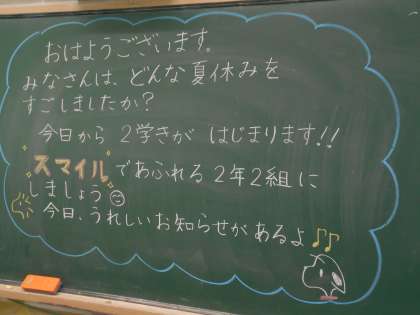 おはようございます。
みなさんは、どんな夏休みを
すごしましたか?
今日から 2学きが はじまります!!
スマイルであふれる 2年2組に
しましょう
今日、うれしいお知らせが あるよ♪♪